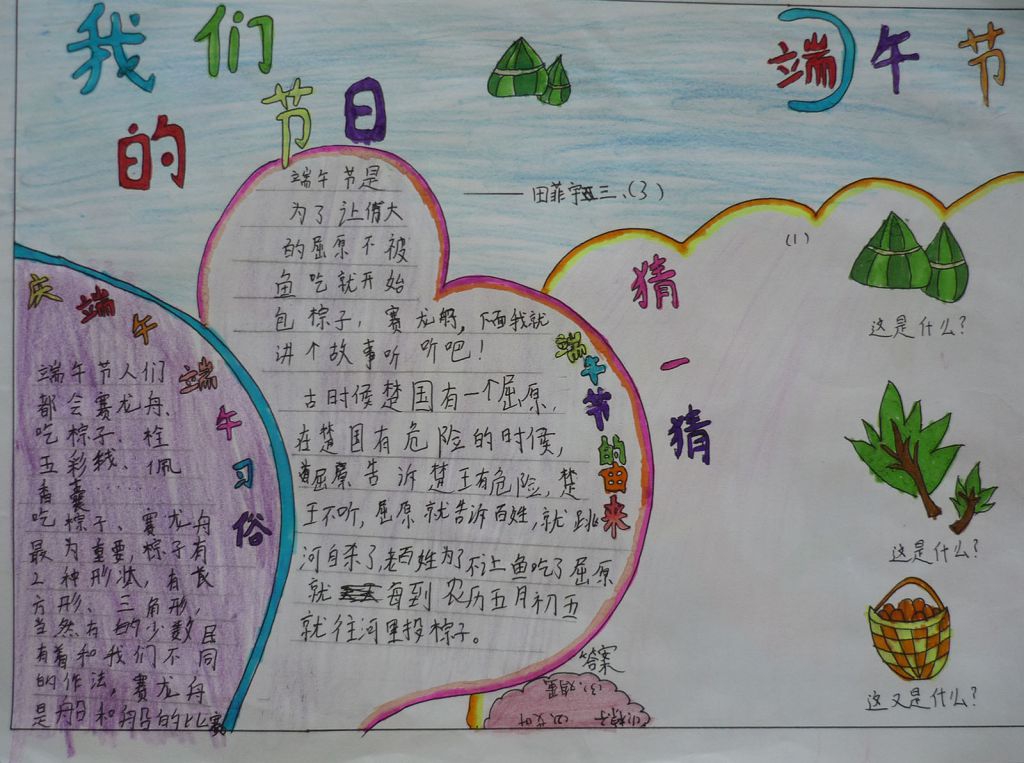 我们
的节日
端午节
——田菲宇 三、(3)
庆端午
端午习俗
端午节人们
都会赛龙舟、
吃棕子、栓
五彩线、佩
香囊……
吃棕子、赛龙舟
最为重要，棕子有
2种形状，有长
方形、三角形，
当然有的少数民
有着和我们不同
的作法，赛龙舟
是船和船的比赛
端午节是
为了让伟大
的屈原不被
鱼吃就开始
包棕子，赛龙舟，下面我就
讲个故事听听吧！
古时候楚国有一个屈原，
在楚国有危险的时候，
屈原告诉楚王有危险，楚
王不听，屈原就告诉百姓，就跳
河自杀了，老百姓为了不让鱼吃了屈原
就每到农历五月初五
就往河里投棕子。
端午节的由来
猜一猜
(1)
这是什么？
这是什么？
这又是什么？
答案
(3)、鸡蛋
(1)棕子 (2)艾叶